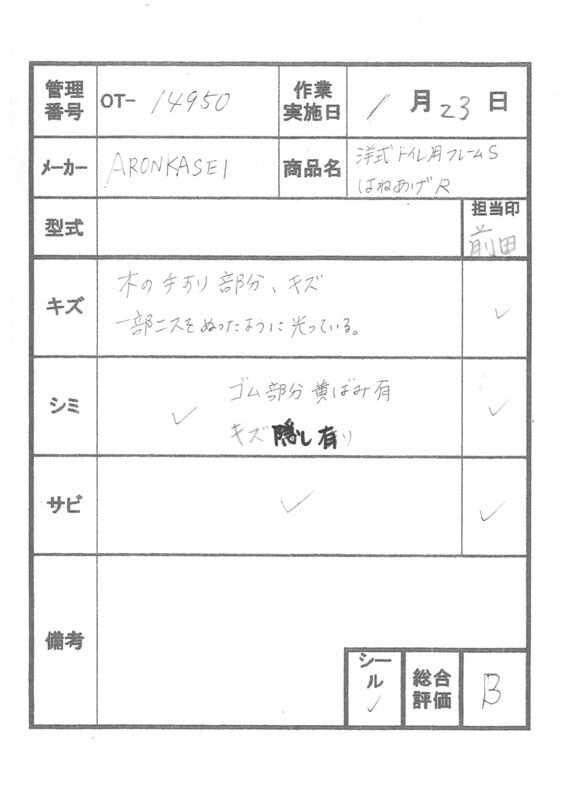 管理番号 OT- 14950 作業実施日 1月23日
メーカー ARONKASEI 商品名 洋式トイレ用フレームS
はねあげR
型式 担当印
前田
キズ 木の手すり部分、キズ ✓
一部ニスをぬったように光っている。
シミ ✓ ゴム部分黄ばみ有 ✓
キズ隠し有り
サビ ✓ ✓
備考
シール ✓ 総合評価 B